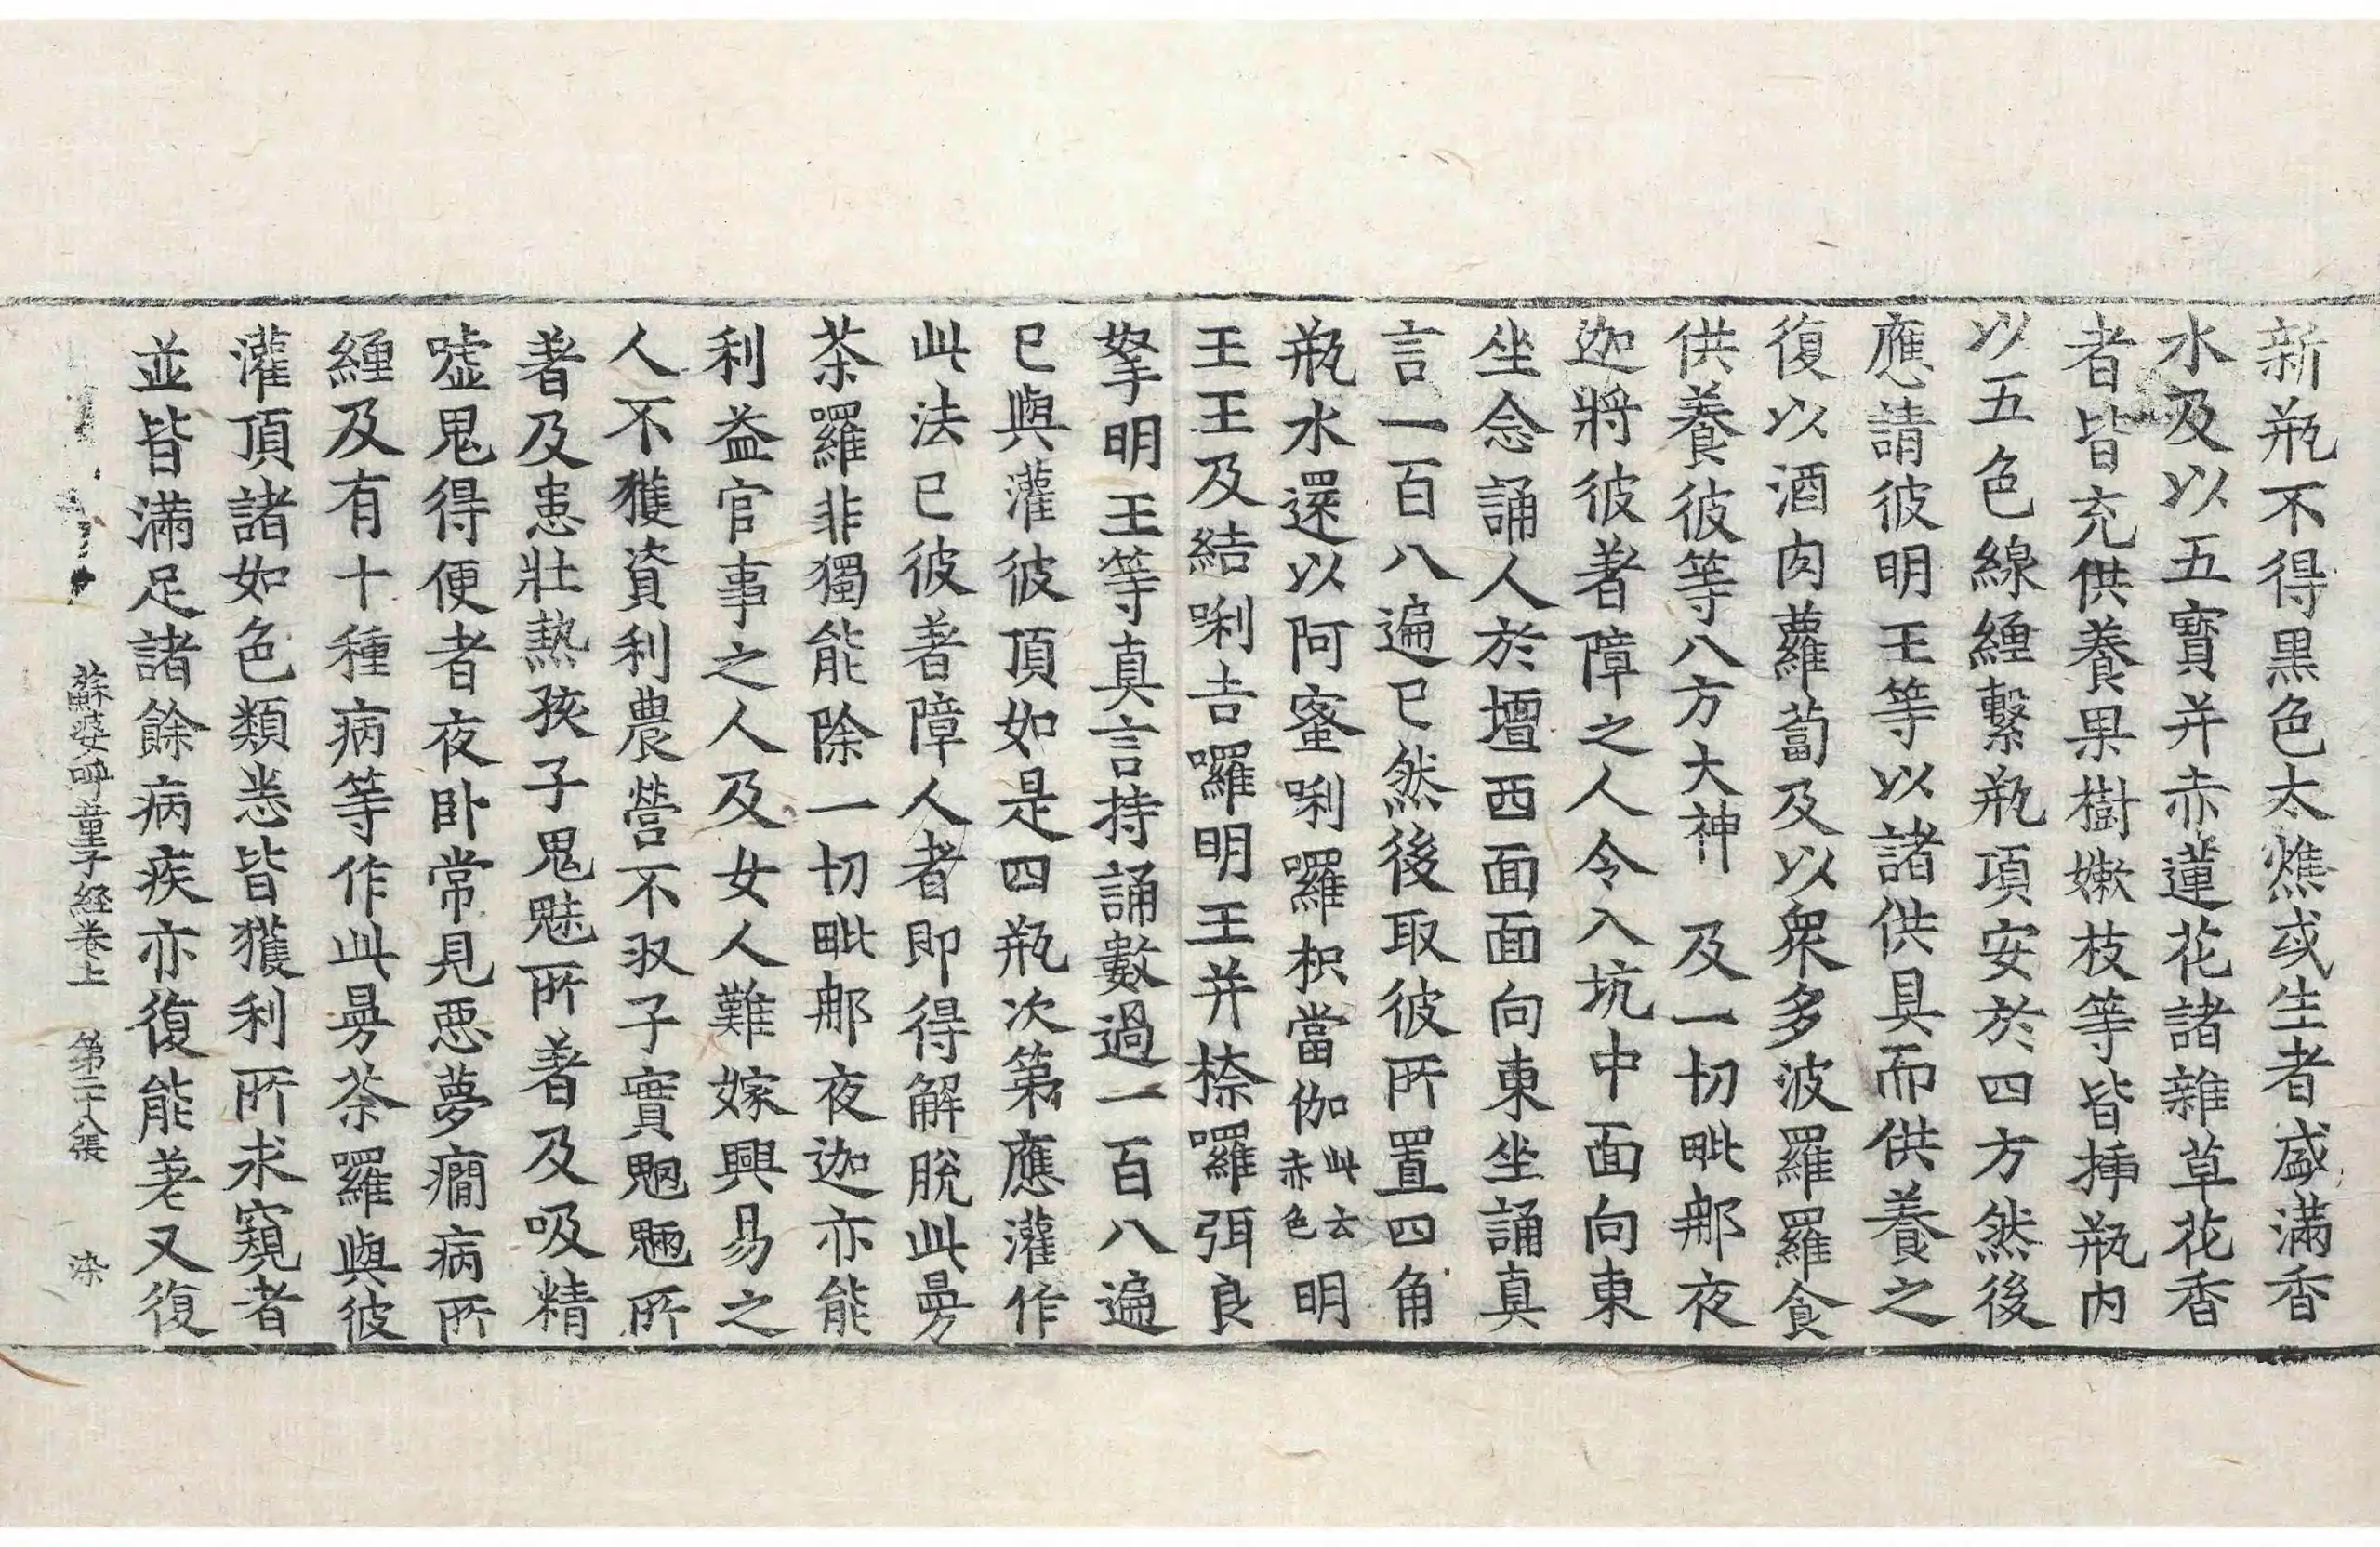 新瓶不得黒色太燋或生者盛滿香
水及以五寶并赤蓮花諸雜草花香
者皆充供養果樹嫰枝等皆揷瓶内
以五色線纏繫瓶項安於四方然後
應請彼明王等以諸供具而供養之
復以酒肉蘿蔔及以衆多波羅羅食
供養彼等八方大神 及一切毗那夜
迦將彼著障之人令入坑中面向東
坐念誦人於壇西面面向東坐誦真
言一百八遍已然後取彼所置四角
瓶水還以阿蜜唎囉枳當伽此云赤色明
王王及結唎吉囉明王并㮈囉弭良
拏明王等真言持誦數過一百八遍
已與灌彼頂如是四瓶次第應灌作
此法已彼著障人者即得解脫此曼
荼羅非獨能除一切毗那夜迦亦能
利益官事之人及女人難嫁興易之
人不獲資利農營不収子實魍魎所
著及患壯熱孩子鬼魅所著及吸精
噓鬼得便者夜卧常見惡夢癎病所
纏及有十種病等作此曼荼羅與彼
灌頂諸如色類悉皆獲利所求窺者
並皆滿足諸餘病疾亦復能差又復
蘇婆呼童子経卷上 第二十八張 染